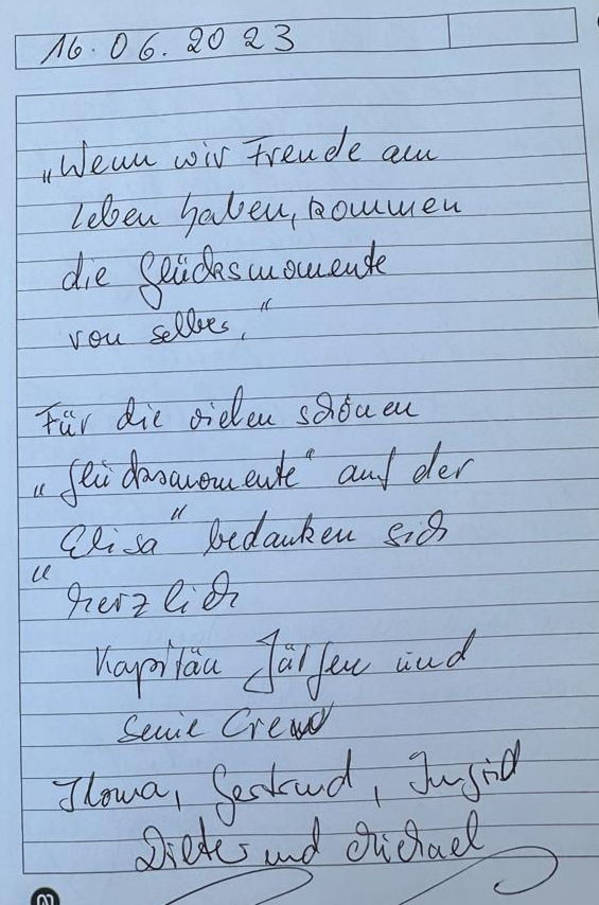 16.06.2023
„Wenn wir Freude am
Leben haben, kommen
die Glücksmomente
von selber."
Für die vielen schönen
„Glücksmomente" auf der
„Elisa" bedanken sich
herzlich
Kapitän und
seine Crew
Ilona, Gertrud, Ingrid
Dieter und Michael